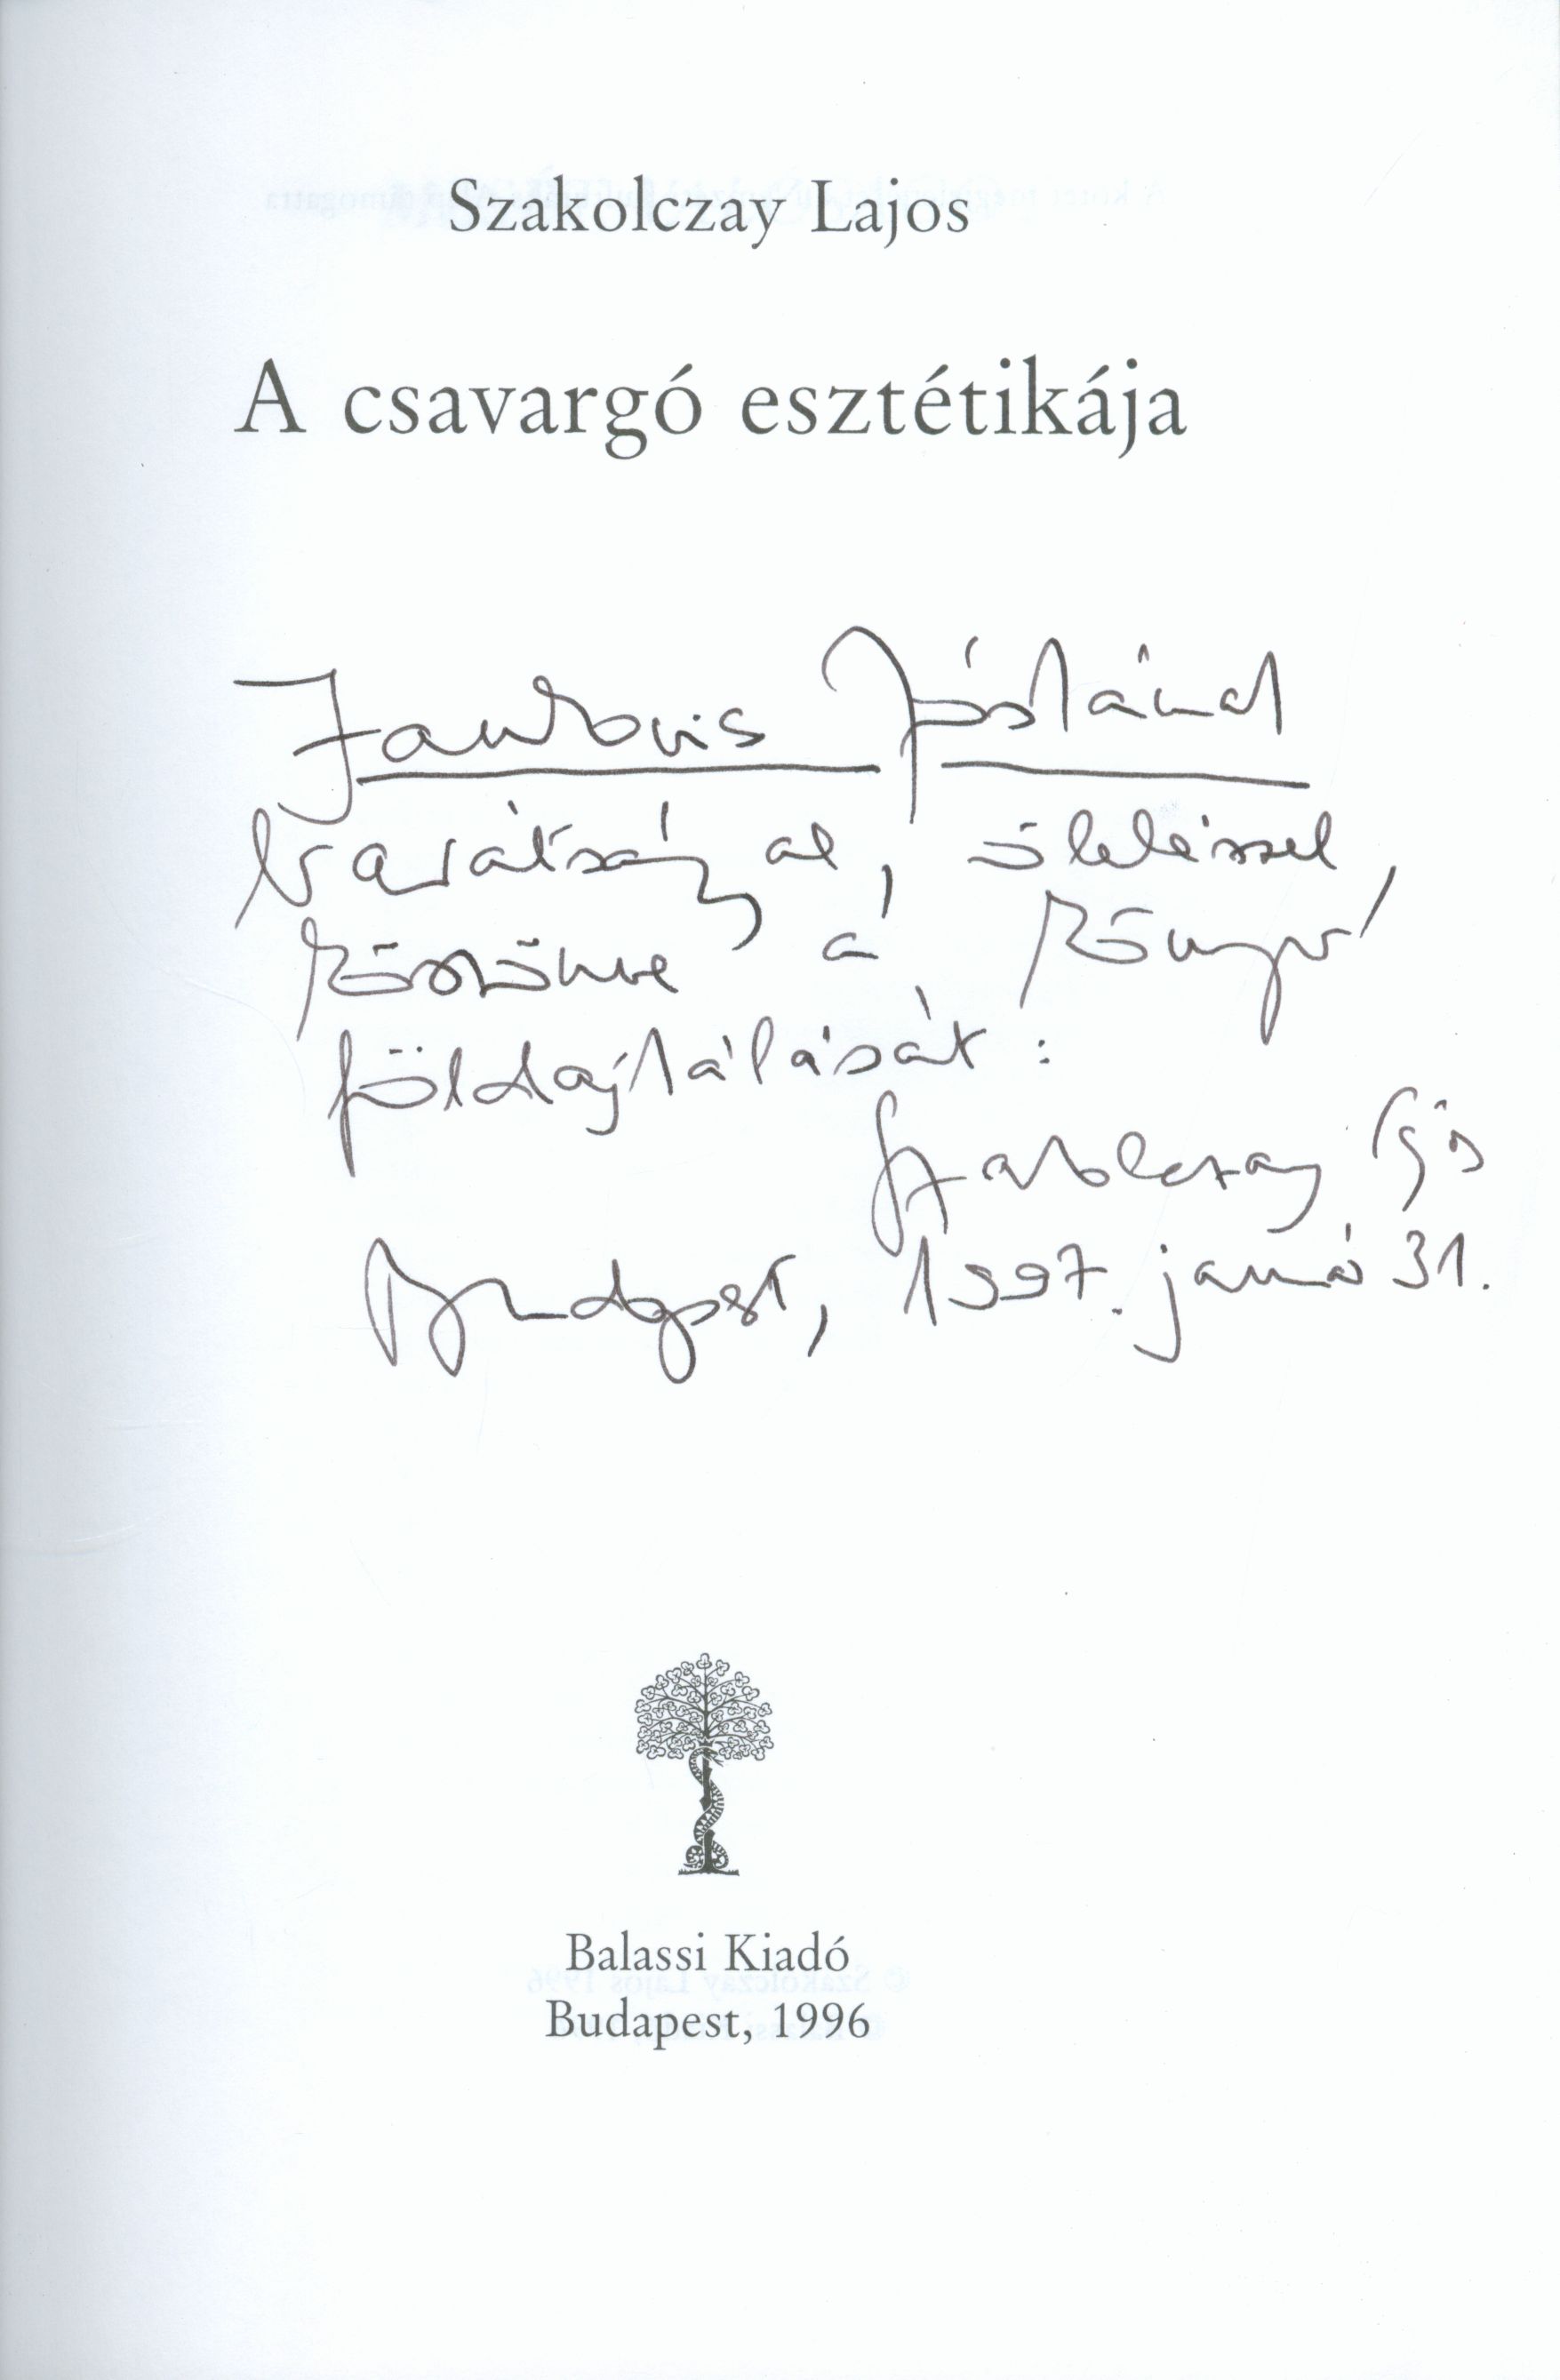 Szakolczay Lajos
A csavargó esztétikája
Jankovics Józsának
barátsággal, öleléssel,
köszönve a könyv
földajtálását:
Szakolczay Lajos
Budapest, 1997. január 31.
Balassi Kiadó
Budapest, 1996